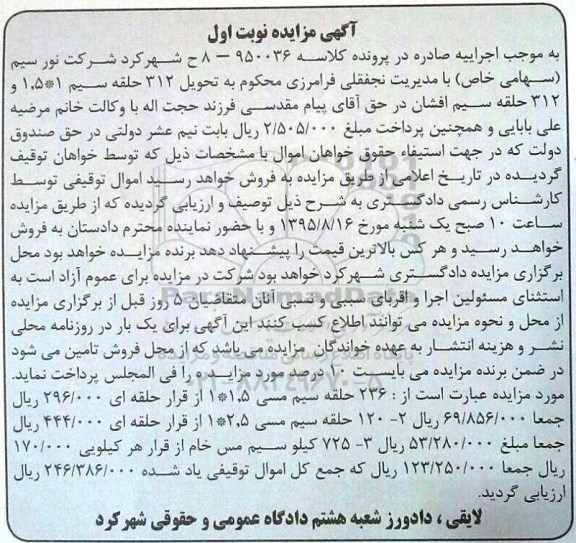 آگهی مزایده نوبت اول
به موجب اجراییه صادره در پرونده کلاسه ۹۵۰۰۳۶ – ۸ ح شهرکرد شرکت نور سیم
(سهامی خاص) با مدیریت نجفقلی فرامرزی محکوم به تحویل ۳۱۲ حلقه سیم ۱*۱.۵ و
۳۱۲ حلقه سیم افشان در حق آقای پیام مقدسی فرزند حجت اله با وکالت خانم مرضیه
علی بابایی و همچنین پرداخت مبلغ ۲/۵۰۵/۰۰۰ ریال بابت نیم عشر دولتی در حق صندوق
دولت که در جهت استیفاء حقوق خواهان اموال با مشخصات ذیل که توسط خواهان توقیف
گردیده در تاریخ اعلامی از طریق مزایده به فروش خواهد رسید اموال توقیفی توسط
کارشناس رسمی دادگستری به شرح ذیل توصیف و ارزیابی گردیده که از طریق مزایده
ساعت ۱۰ صبح یک شنبه مورخ ۱۳۹۵/۸/۱۶ و با حضور نماینده محترم دادستان به فروش
خواهد رسید و هر کس بالاترین قیمت را پیشنهاد دهد برنده مزایده خواهد بود محل
برگزاری مزایده دادگستری شهرکرد خواهد بود شرکت در مزایده برای عموم آزاد است به
استثنای مسئولین اجرا و اقربای سببی و نسبی آنان متقاضیان ۵ روز قبل از برگزاری مزایده
از محل و نحوه مزایده می توانند اطلاع کسب کنند این آگهی برای یک بار در روزنامه محلی
نشر و هزینه انتشار به عهده خواندگان مزایده می باشد که از محل فروش تامین می شود
در ضمن برنده مزایده می بایست ۱۰ درصد مورد مزایده را فی المجلس پرداخت نماید.
مورد مزایده عبارت است از : ۲۳۶ حلقه سیم مسی ۱*۱.۵ از قرار حلقه ای ۲۹۶/۰۰۰ ریال
جمعا ۶۹/۸۵۶/۰۰۰ ریال ۲- ۱۲۰ حلقه سیم مسی ۱*۲.۵ از قرار حلقه ای ۴۴۴/۰۰۰ ریال
جمعا مبلغ ۵۳/۲۸۰/۰۰۰ ریال ۳- ۷۲۵ کیلو سیم مس خام از قرار هر کیلویی ۱۷۰/۰۰۰
ریال جمعا ۱۲۳/۲۵۰/۰۰۰ ریال که جمع کل اموال توقیفی یاد شده ۲۴۶/۳۸۶/۰۰۰ ریال
ارزیابی گردید.
لایقی ، دادورز شعبه هشتم دادگاه عمومی و حقوقی شهرکرد
ParsNamadData
پایگاه اطلاع رسانی مناقصه و مزایده
۰۲۱-۸۸۳۴۹۶۷۰-۵